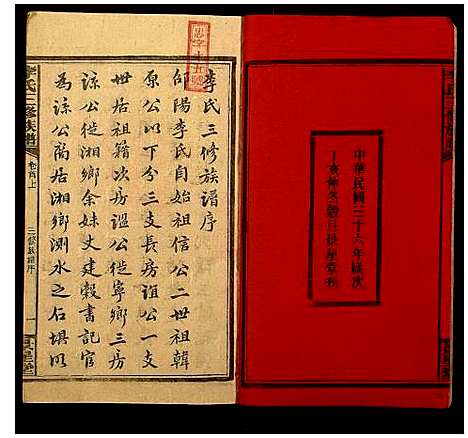 中華民國三十六年歲次
丁亥仲冬穀旦景星堂刊
李氏三修族譜序
邵陽李氏自始祖信公二世祖韓
原公以下分三支長房誼公一支
世居祖籍次房諡公徙寧鄉三房
諒公徙湘鄉余妹丈建穀書記官
為諒公裔居湘鄉測水之石堪以
李氏三修族譜
卷首上
三修族譜序
一